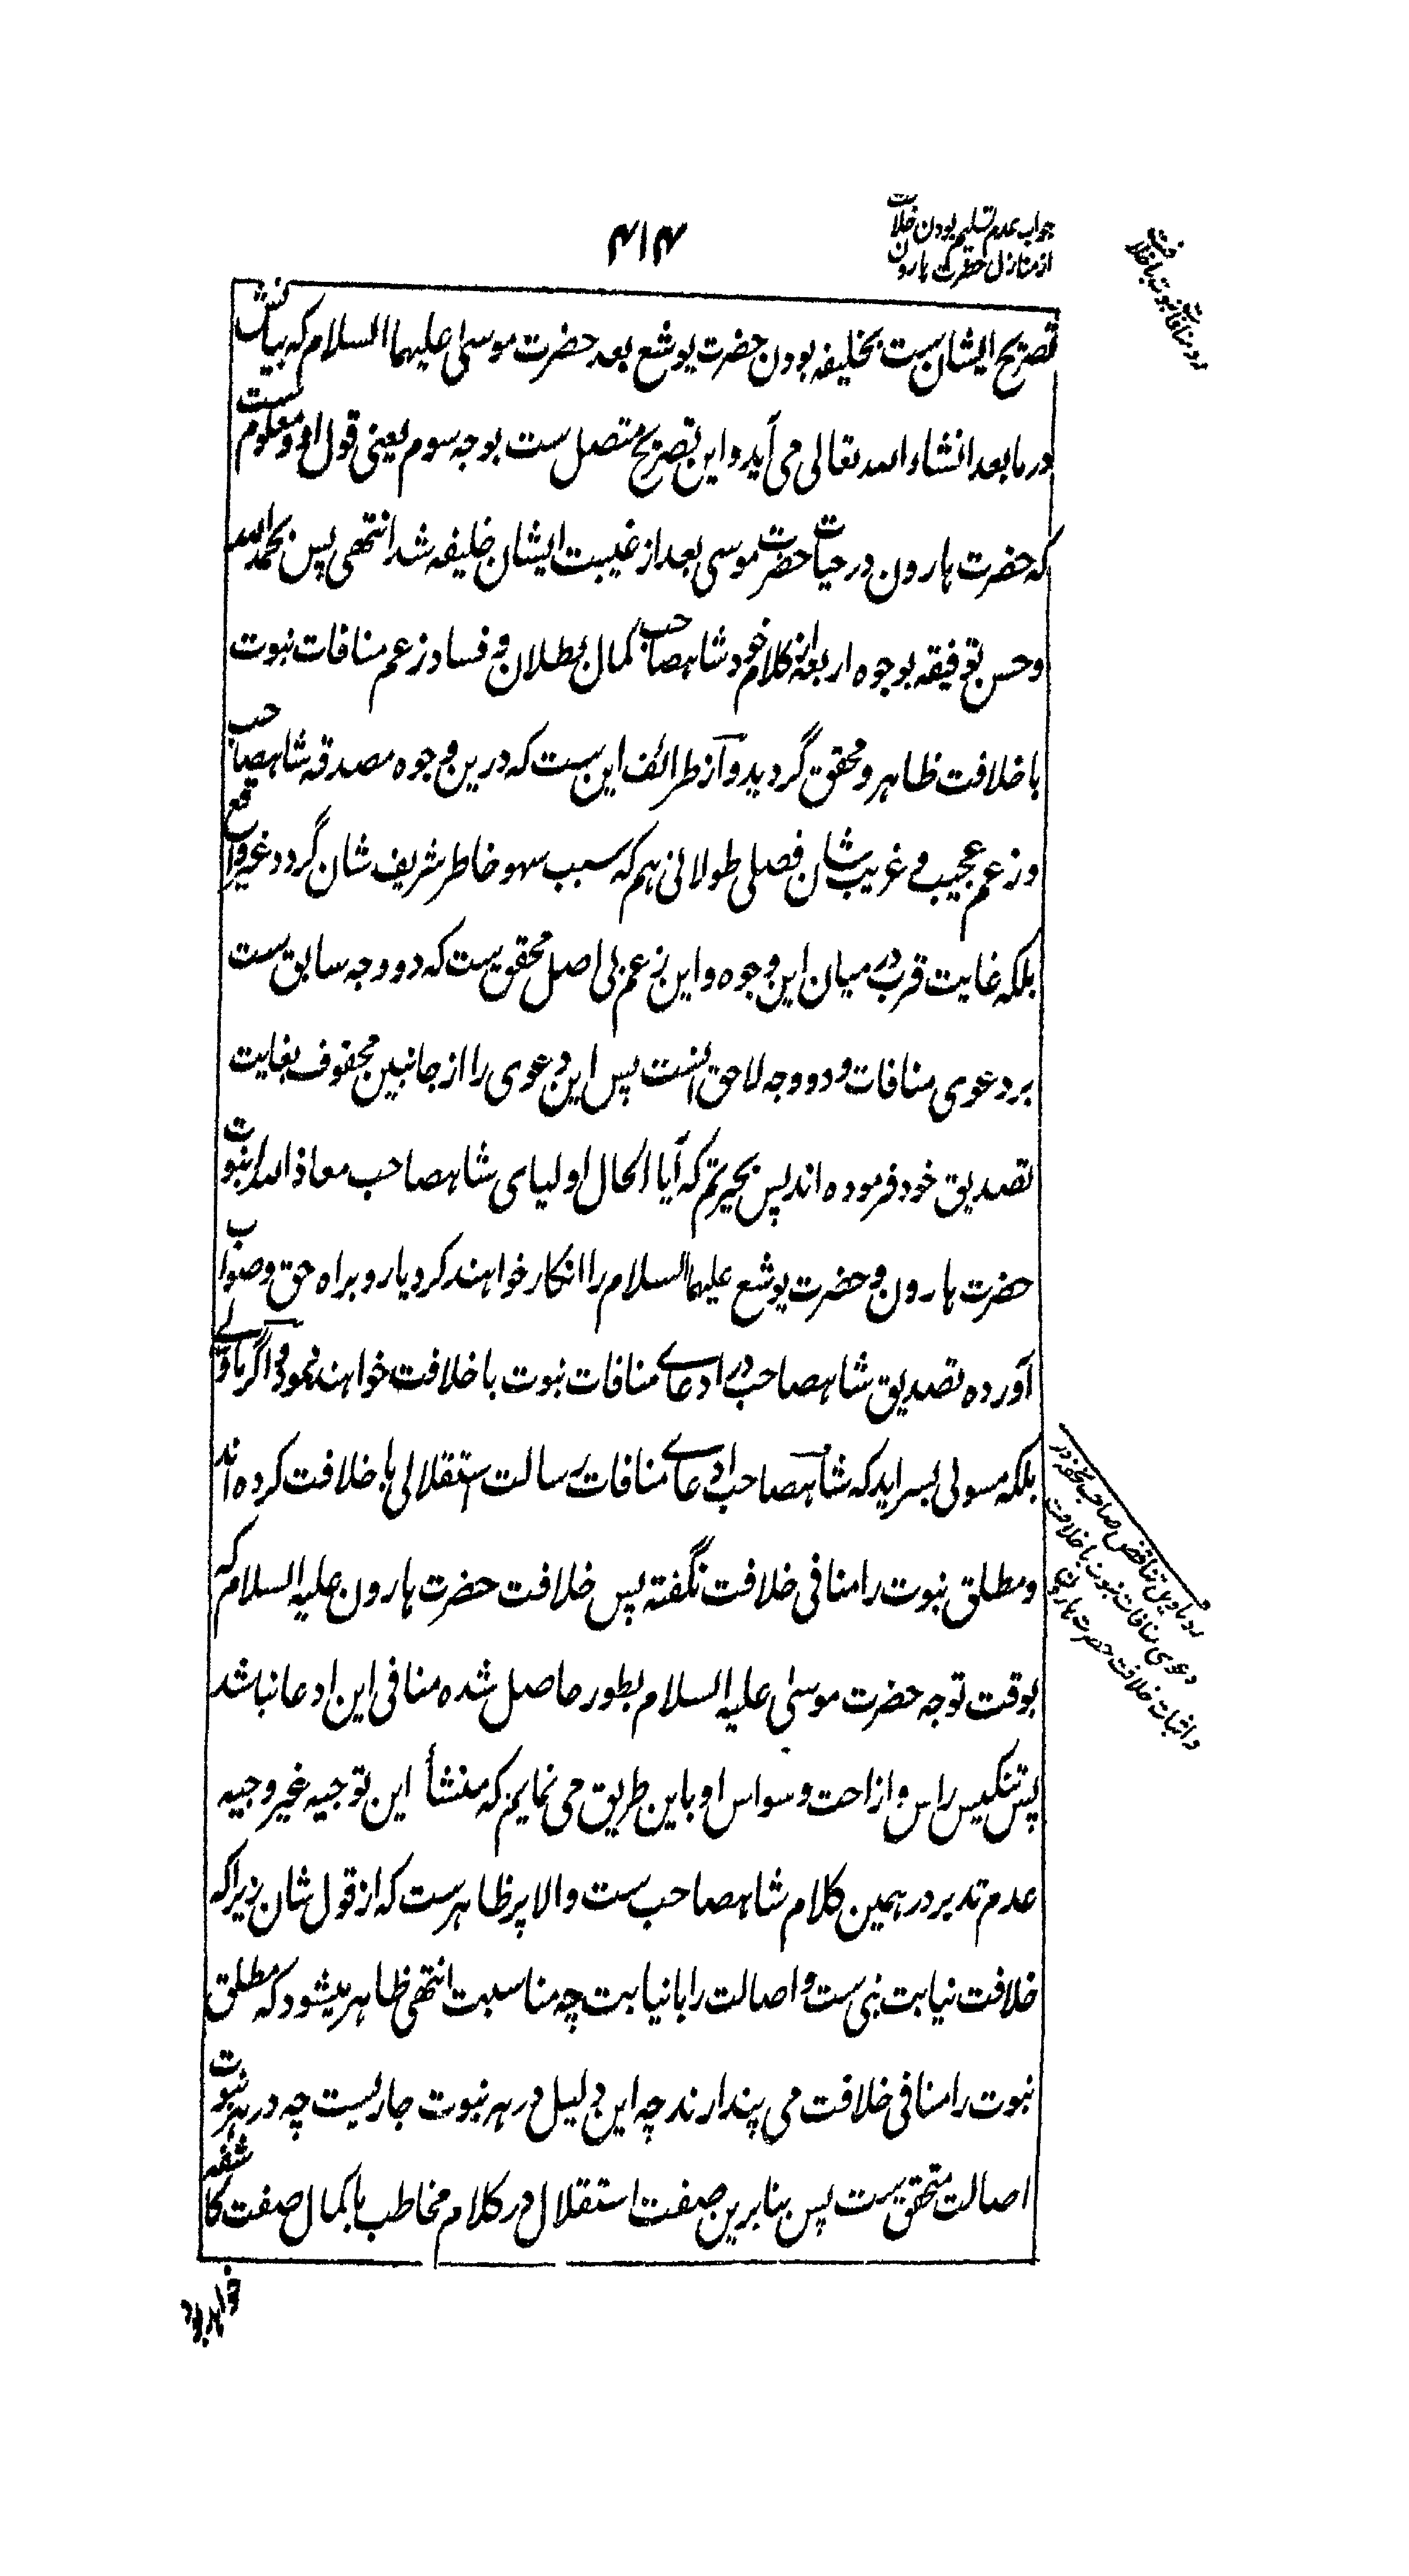 ۴۱۴
جواب عدم تسلیم بودن خلافت
از منازل حضرت هارون
رد منافات نبوت با خلافت
تصریح ایشان ست بخلیفه بودن حضرت یوشع بعد حضرت موسیٰ علیهما السلام که بیانش
در ما بعد انشاء الله تعالی می آید و این تصریح متصل ست بوجه سوم یعنی قول او و معلوم ست
که حضرت هارون در حیات حضرت موسی بعد از غیبت ایشان خلیفه شد انتهی پس بحمد الله
و حسن توفیقه بوجوه اربعه از کلام خود شاهصاحب کمال بطلان و فساد زعم منافات نبوت
با خلافت ظاهر و محقق گردید و از طرائف این ست که درین وجوه مصدقه شاهصاحب
و زعم عجیب و غریب شان فصلی طولانی هم که سبب سهو خاطر شریف شان گردد غیر واقع
بلکه غایت قرب در میان این وجوه و این زعم بی اصل محقق ست که دو وجه سابق ست
بر دعوی منافات و دو وجه لاحق انست پس این دعوی را از جانبین محفوف بغایت
تصدیق خود فرموده اند پس بحیرتم که آیا الحال اولیای شاهصاحب معاذ الله از نبوت
حضرت هارون و حضرت یوشع علیهما السلام را انکار خواهند کرد یا رو براه حق و صواب
آورده تصدیق شاهصاحب در ادعای منافات نبوت با خلافت خواهند نمود و اگر تاویلے
بلکه مسولی بسراید که شاهصاحب ادعای منافات رسالت استقلالی با خلافت کرده اند
و مطلق نبوت را منافی خلافت نگفته پس خلافت حضرت هارون علیه السلام که
بوقت توجه حضرت موسیٰ علیه السلام بطور حاصل شده منافی این ادعا نباشد
پس تنکیس راس و ازاحت وسواس او باین طریق می نمایم که منشأ این توجیه غیر وجیه
عدم تدبر در همین کلام شاهصاحب ست و الا پر ظاهرست که از قول شان زیرا که
خلافت نیابت نبی ست و اصالت را با نیابت چه مناسبت انتهی ظاهر میشود که مطلق
نبوت را منافی خلافت می پندارند چه این دلیل در هر نبوت جاریست چه در هر نبوت
اصالت متحقق ست پس بنابرین صفت استقلال در کلام مخاطب با کمال صفت کاشفه
رد تاویل تناقض صاحب تحفه در
دعوی منافات نبوت با خلافت
و اثبات خلافت حضرت هارون
خواهد بود